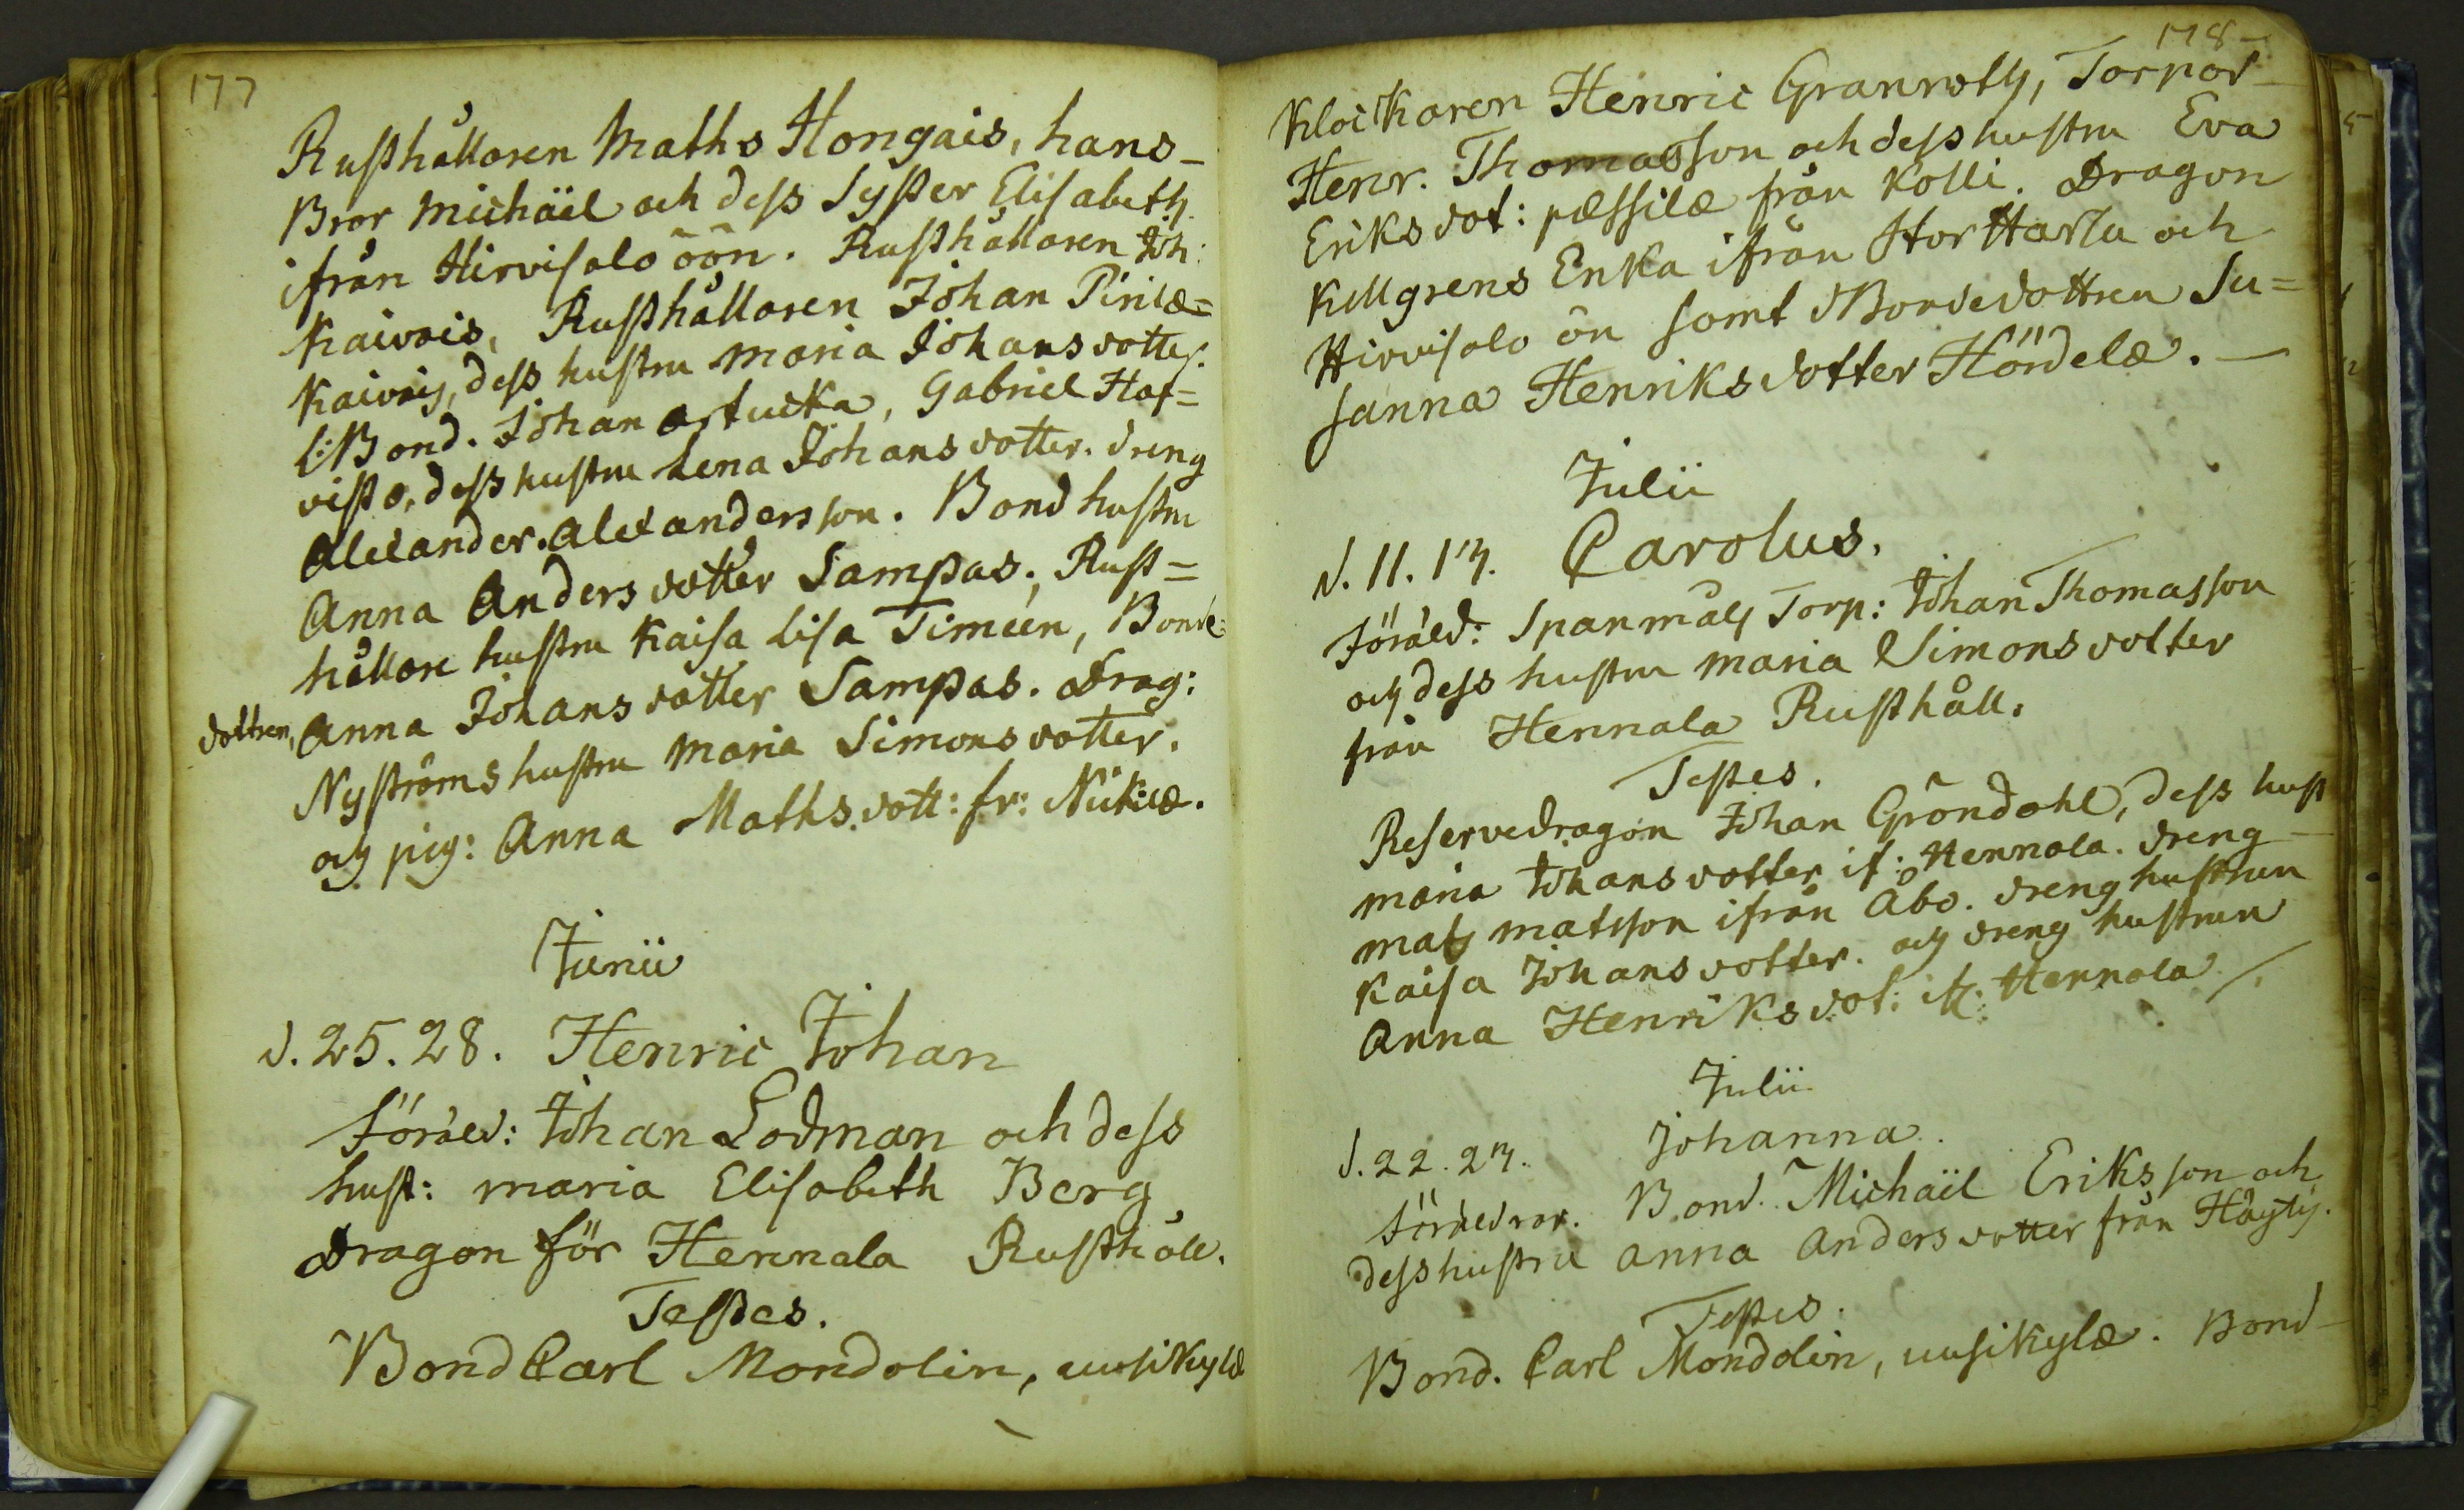 177
Rusthållaren Maths Hongais, hans
Bror Michäel och dess Syster Elisabeth
ifrån Hirvisalo öön. Rusthållaren Joh:
Kaivois, Rusthållaren Johan Pirilæ=
Kaivois, dess hustru Maria Johansdotter.
Bond. Johan Artucka, Gabriel Haf=
visto, dess hustru Lena Johansdotter. dreng
Alexander Alexandersson. Bond hustru
Anna Andersdotter Sampas. Rust=
hållare hustru Kaisa Lisa Timéen, Bonde=
dottren, Anna Johansdotter Sampas. Drag:
Nyströms hustru Maria Simonsdotter.
och pig: Anna Mathsdott: fr: Nickilæ.
Junii
d. 25. 28. Henric Johan
Föräld: Johan Lodman och dess
hust: Maria Elisabeth Berg
Dragon för Hennala Rusthåll.
Testes.
Bond Carl Mondolin, uusikylæ
178
Klockaren Henric Granroth, Torpar
Henr. Thomasson och dess hustru Eva
Eriksdot: pæssilæ från Kolli. Dragon
Killgrens Enka ifrån Stor Harla och
Hirvisalo ön samt Bondedottren Su=
sanna Henriksdotter Hördelæ.
Julii
d. 11. 17. Carolus.
Föräld: Spanmåls Torp: Johan Thomasson
och dess hustru Maria Simonsdotter
från Hennala Rusthåll.
Testes.
Reservedragon Johan Gröndahl, dess hust
Maria Johansdotter if: Hennala. dreng
Mats Matsson ifrån Åbo. dreng hustrun
Kaisa Johansdotter. och dreng hustrun
Anna Henriksdot: if: Hennala
Julii
d. 22. 27. Johanna.
Föräldrar. Bond. Michäel Eriksson och
dess hustru Anna Andersdotter från Häyty.
Testes.
Bond. Carl Mondolin, uusikylæ. Bond